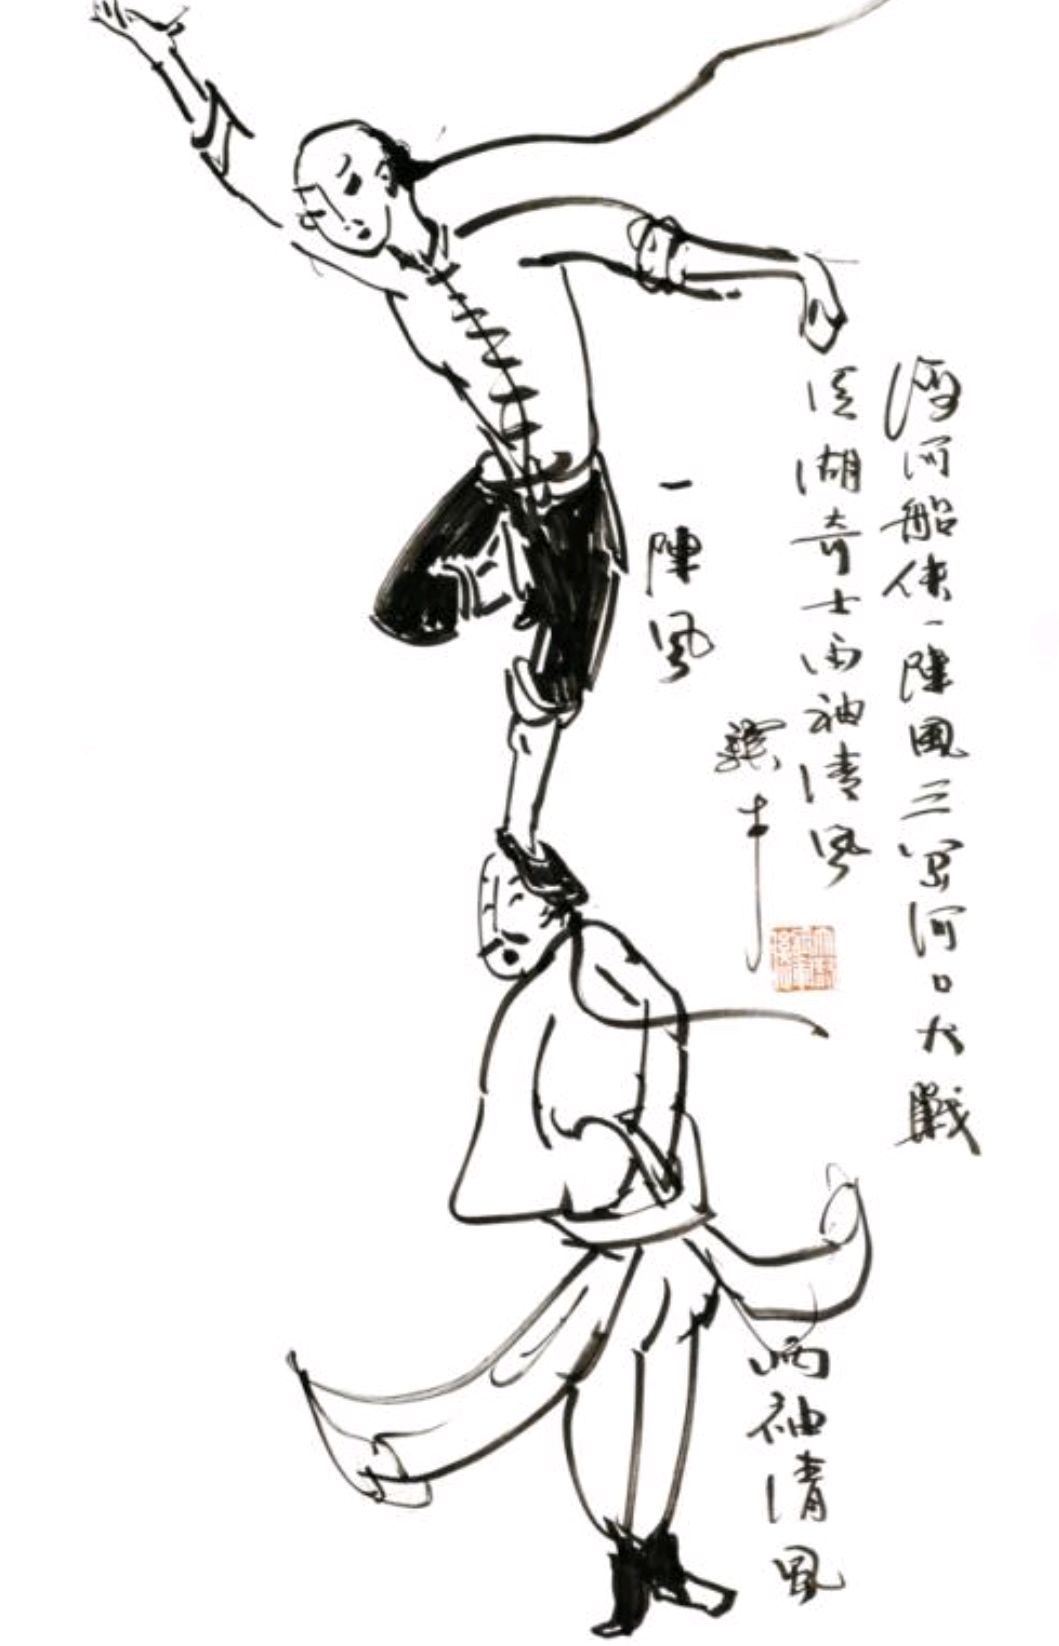 海河船俠一陣風三岔河口大戰
江湖奇士兩袖清風
驥才
一陣風
兩袖清風